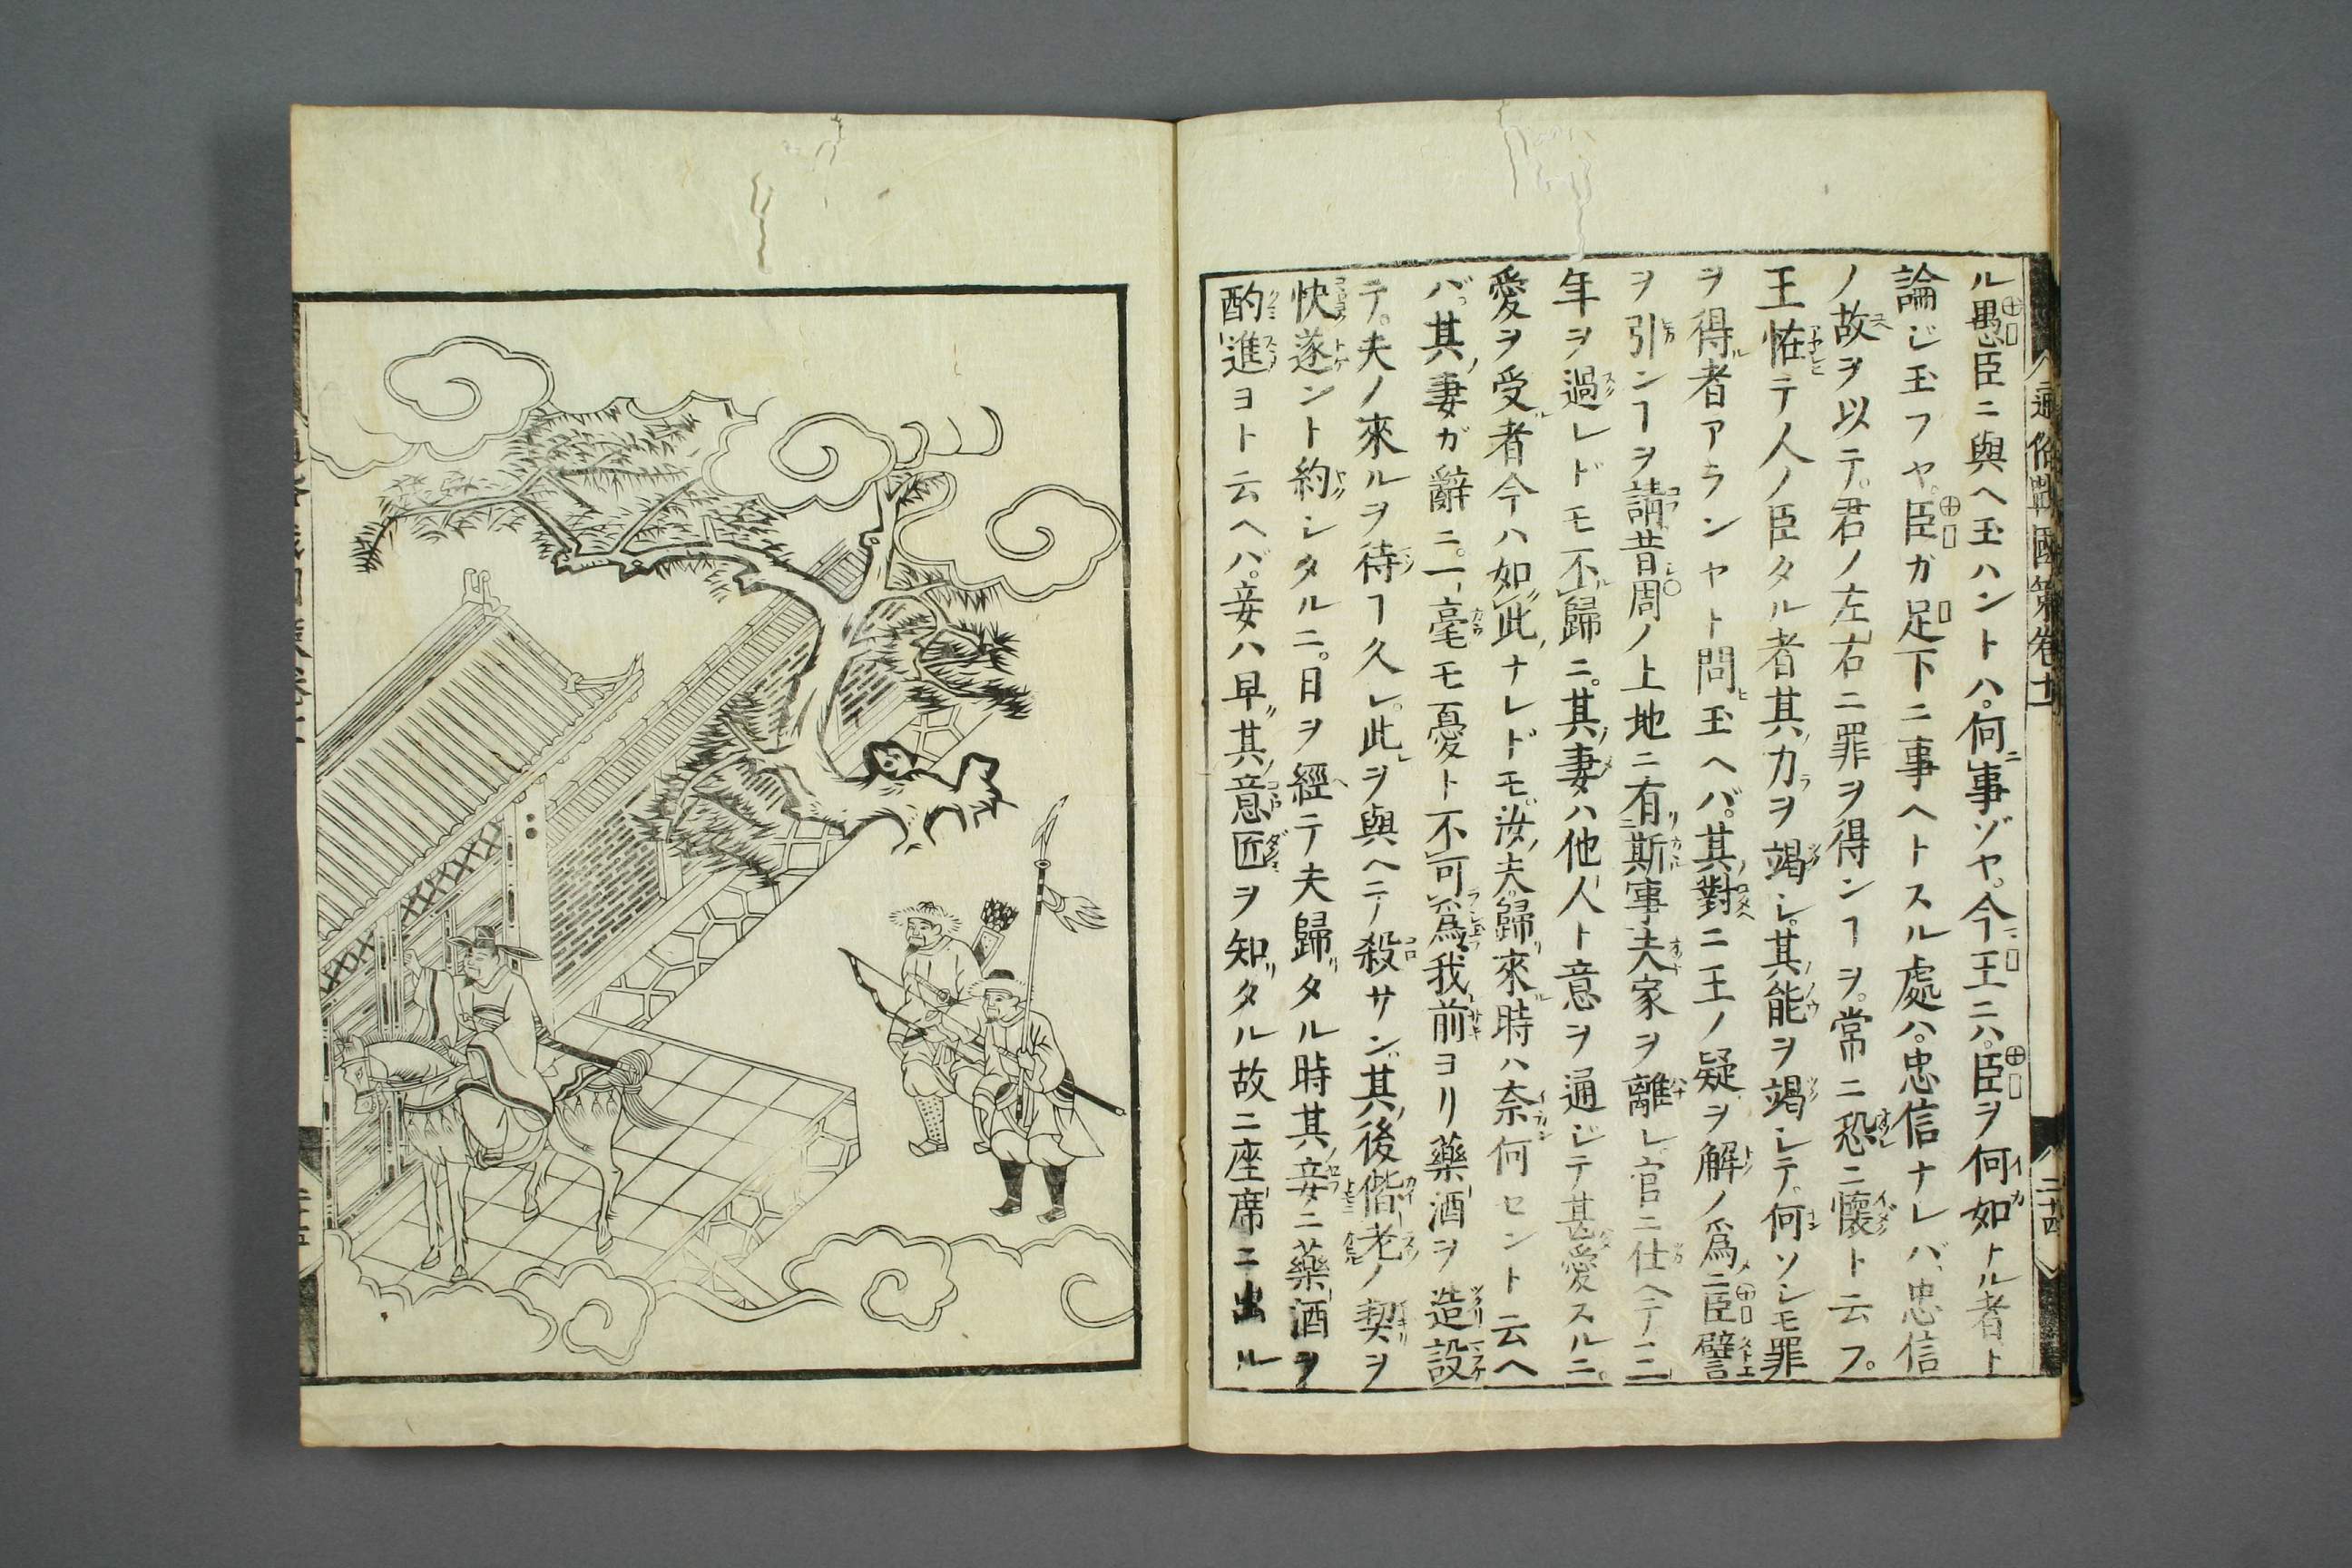 通俗戰國策卷十
二十四
ル愚臣ニ與ヘ玉ハントハ。何事ゾヤ。今王ニハ。臣ヲ何如ナル者ト
論ジ玉フヤ。臣ガ足下ニ事ヘトスル處ハ。忠信ナレバ、忠信
ノ故ヲ以テ。君ノ左右ニ罪ヲ得ンヿヲ。常ニ恐ニ懷ト云フ。
王恠テ人ノ臣タル者其力ヲ竭シ。其能ヲ竭シテ。何ソシモ罪
ヲ得者アランヤト問玉ヘバ。其對ニ王ノ疑ヲ解ノ爲ニ臣譬
ヲ引ンヿヲ請昔周ノ上地ニ有斯事夫家ヲ離レ。官ニ仕ヘテ三
年ヲ過レドモ不歸ニ。其妻ハ他人ト意ヲ通ジテ甚愛スルニ。
愛ヲ受者今ハ如此ナレドモ。汝夫歸來時ハ奈何セント云ヘ
バ。其妻ガ辭ニ。一毫モ憂ト不可爲我前ヨリ藥酒ヲ造設
テ。夫ノ來ルヲ待ヿ久レ。此ヲ與ヘテ殺サン。其後偕老ノ契ヲ
快遂ント約シタルニ。日ヲ經テ夫歸タル時其妾ニ藥酒ヲ
酌進ヨト云ヘバ。妾ハ早其意匠ヲ知タル故ニ座席ニ出ル